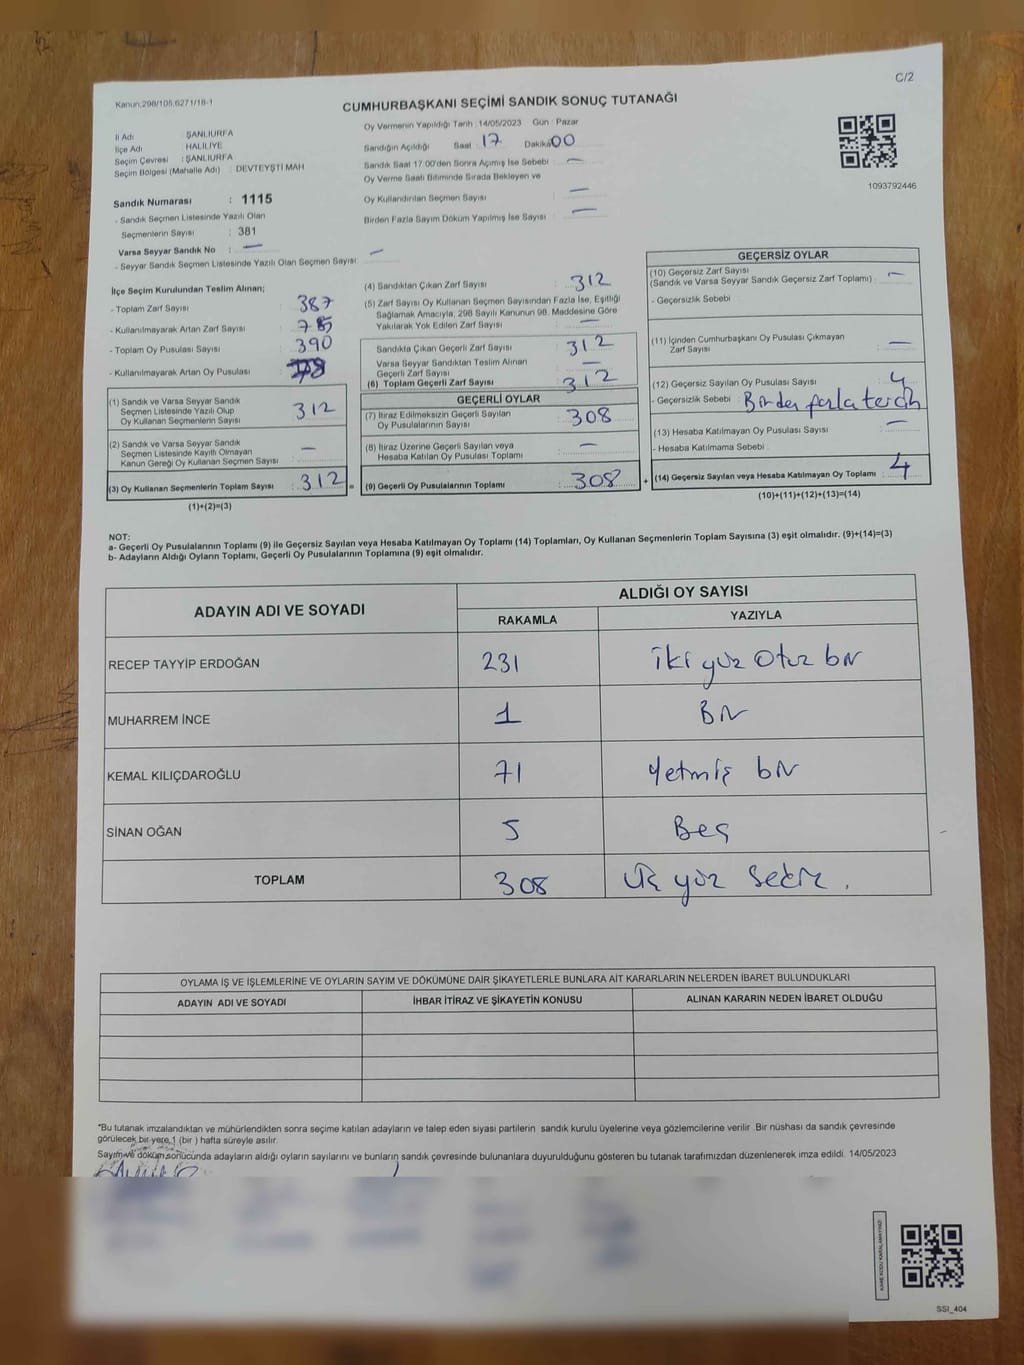 C/2
Kanun;298/105;6271/18-1
CUMHURBAŞKANI SEÇİMİ SANDIK SONUÇ TUTANAĞI
İl Adı : ŞANLIURFA
İlçe Adı : HALİLİYE
Seçim Çevresi : ŞANLIURFA
Seçim Bölgesi (Mahalle Adı) : DEVTEYŞTİ MAH
Oy Vermenin Yapıldığı Tarih : 14/05/2023 Gün : Pazar
Sandığın Açıldığı Saat 17 Dakika 00
Sandık Saat 17:00'den Sonra Açılmış İse Sebebi : —
Oy Verme Saati Bitiminde Sırada Bekleyen ve
Oy Kullandırılan Seçmen Sayısı : —
Birden Fazla Sayım Döküm Yapılmış İse Sayısı : —
1093792446
Sandık Numarası : 1115
- Sandık Seçmen Listesinde Yazılı Olan
Seçmenlerin Sayısı : 381
Varsa Seyyar Sandık No : —
- Seyyar Sandık Seçmen Listesinde Yazılı Olan Seçmen Sayısı : —
İlçe Seçim Kurulundan Teslim Alınan;
- Toplam Zarf Sayısı : 387
- Kullanılmayarak Artan Zarf Sayısı :
- Toplam Oy Pusulası Sayısı : 390
- Kullanılmayarak Artan Oy Pusulası : 78
(1) Sandık ve Varsa Seyyar Sandık
Seçmen Listesinde Yazılı Olup
Oy Kullanan Seçmenlerin Sayısı : 312
(2) Sandık ve Varsa Seyyar Sandık
Seçmen Listesinde Kayıtlı Olmayan
Kanun Gereği Oy Kullanan Seçmen Sayısı : —
(3) Oy Kullanan Seçmenlerin Toplam Sayısı : 312 =
(1)+(2)=(3)
(4) Sandıktan Çıkan Zarf Sayısı : 312
(5) Zarf Sayısı Oy Kullanan Seçmen Sayısından Fazla İse, Eşitliği
Sağlamak Amacıyla, 298 Sayılı Kanunun 98. Maddesine Göre
Yakılarak Yok Edilen Zarf Sayısı : —
Sandıkta Çıkan Geçerli Zarf Sayısı : 312
Varsa Seyyar Sandıktan Teslim Alınan
Geçerli Zarf Sayısı : —
(6) Toplam Geçerli Zarf Sayısı : 312
GEÇERLİ OYLAR
(7) İtiraz Edilmeksizin Geçerli Sayılan
Oy Pusulalarının Sayısı : 308
(8) İtiraz Üzerine Geçerli Sayılan veya
Hesaba Katılan Oy Pusulası Toplamı : —
(9) Geçerli Oy Pusulalarının Toplamı : 308 +
GEÇERSİZ OYLAR
(10) Geçersiz Zarf Sayısı
(Sandık ve Varsa Seyyar Sandık Geçersiz Zarf Toplamı) : —
- Geçersizlik Sebebi
(11) İçinden Cumhurbaşkanı Oy Pusulası Çıkmayan
Zarf Sayısı : —
(12) Geçersiz Sayılan Oy Pusulası Sayısı : 4
- Geçersizlik Sebebi : Birden fazla tercih
(13) Hesaba Katılmayan Oy Pusulası Sayısı : —
- Hesaba Katılmama Sebebi
(14) Geçersiz Sayılan veya Hesaba Katılmayan Oy Toplamı : 4
(10)+(11)+(12)+(13)=(14)
NOT:
a- Geçerli Oy Pusulalarının Toplamı (9) ile Geçersiz Sayılan veya Hesaba Katılmayan Oy Toplamı (14) Toplamları, Oy Kullanan Seçmenlerin Toplam Sayısına (3) eşit olmalıdır. (9)+(14)=(3)
b- Adayların Aldığı Oyların Toplamı, Geçerli Oy Pusulalarının Toplamına (9) eşit olmalıdır.
ADAYIN ADI VE SOYADI ALDIĞI OY SAYISI
RAKAMLA YAZIYLA
RECEP TAYYİP ERDOĞAN 231 İki yüz otuz bir
MUHARREM İNCE 1 Bir
KEMAL KILIÇDAROĞLU 71 Yetmiş bir
SİNAN OĞAN 5 Beş
TOPLAM 308 Üç yüz sekiz.
OYLAMA İŞ VE İŞLEMLERİNE VE OYLARIN SAYIM VE DÖKÜMÜNE DAİR ŞİKAYETLERLE BUNLARA AİT KARARLARIN NELERDEN İBARET BULUNDUKLARI
ADAYIN ADI VE SOYADI İHBAR İTİRAZ VE ŞİKAYETİN KONUSU ALINAN KARARIN NEDEN İBARET OLDUĞU
*Bu tutanak imzalandıktan ve mühürlendikten sonra seçime katılan adayların ve talep eden siyasi partilerin sandık kurulu üyelerine veya gözlemcilerine verilir. Bir nüshası da sandık çevresinde
görülecek bir yere 1 (bir ) hafta süreyle asılır.
Sayım ve döküm sonucunda adayların aldığı oyların sayılarını ve bunların sandık çevresinde bulunanlara duyurulduğunu gösteren bu tutanak tarafımızdan düzenlenerek imza edildi. 14/05/2023
KARE KODU KARALAMAYINIZ!
SSI_404